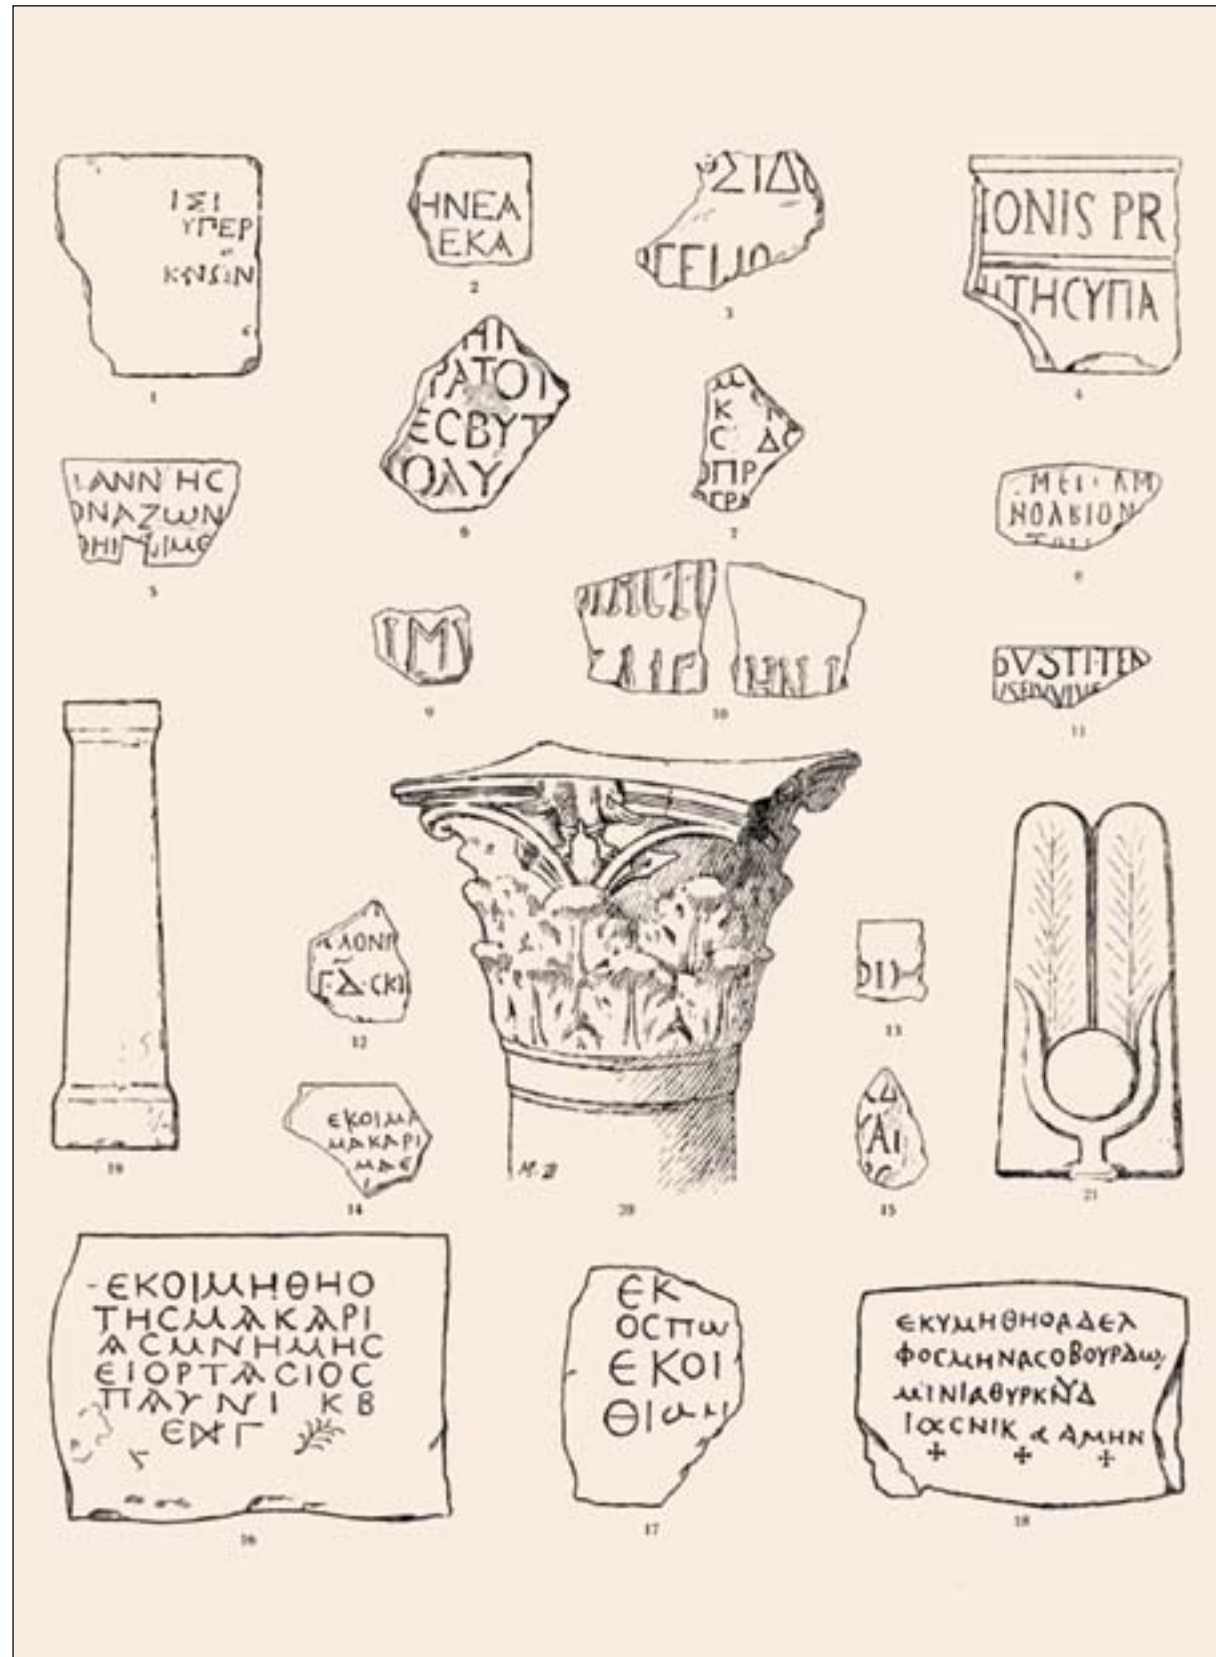 ΙΣΙ
ΥΠΕΡ
ΚΝΩΝ
1
ΗΝΕΑ
ΕΚΑ
2
ΣΙΔ
3
IONIS PR
ΗΤΗϹΥΠΑ
4
ΑΝΝΗϹ
ΟΝΑΖΩΝ
5
ΡΑΤΟΥ
ΕϹΒΥΤ
ΟΛΥ
6
Κ
ΟΠΡ
ΓΡΑ
7
ΝΟΛΒΙΟΝ
8
ΙΜΙ
9
10
DVSTI·TEN
11
ΛΟΝΙ
Γ·Δ·ϹΚΙ
12
13
ΕΚΟΙΜΑ
ΜΑΚΑΡΙ
ΜΑΕ
14
ΑΙ
15
ΕΚΟΙΜΗΘΗΟ
ΤΗϹΜΑΚΑΡΙ
ΑϹΜΝΗΜΗϹ
ΕΙΟΡΤΑϹΙΟϹ
ΠΑΥΝΙ ΚΒ
16
ΕΚ
ΟϹΠω
ΕΚΟΙ
ΘΙΑΜ
17
ΕΚΥΜΗΘΗΟΑΔΕΛ
ΦΟϹΜΗΝΑϹΟΒΟΥΡΔω
ΜΙΝΙΑΘΥΡΚΝΥΔ
ΙΑϹΝΙΚ Α ΑΜΗΝ
✠ ✠ ✠
18
19
M.B
20
21